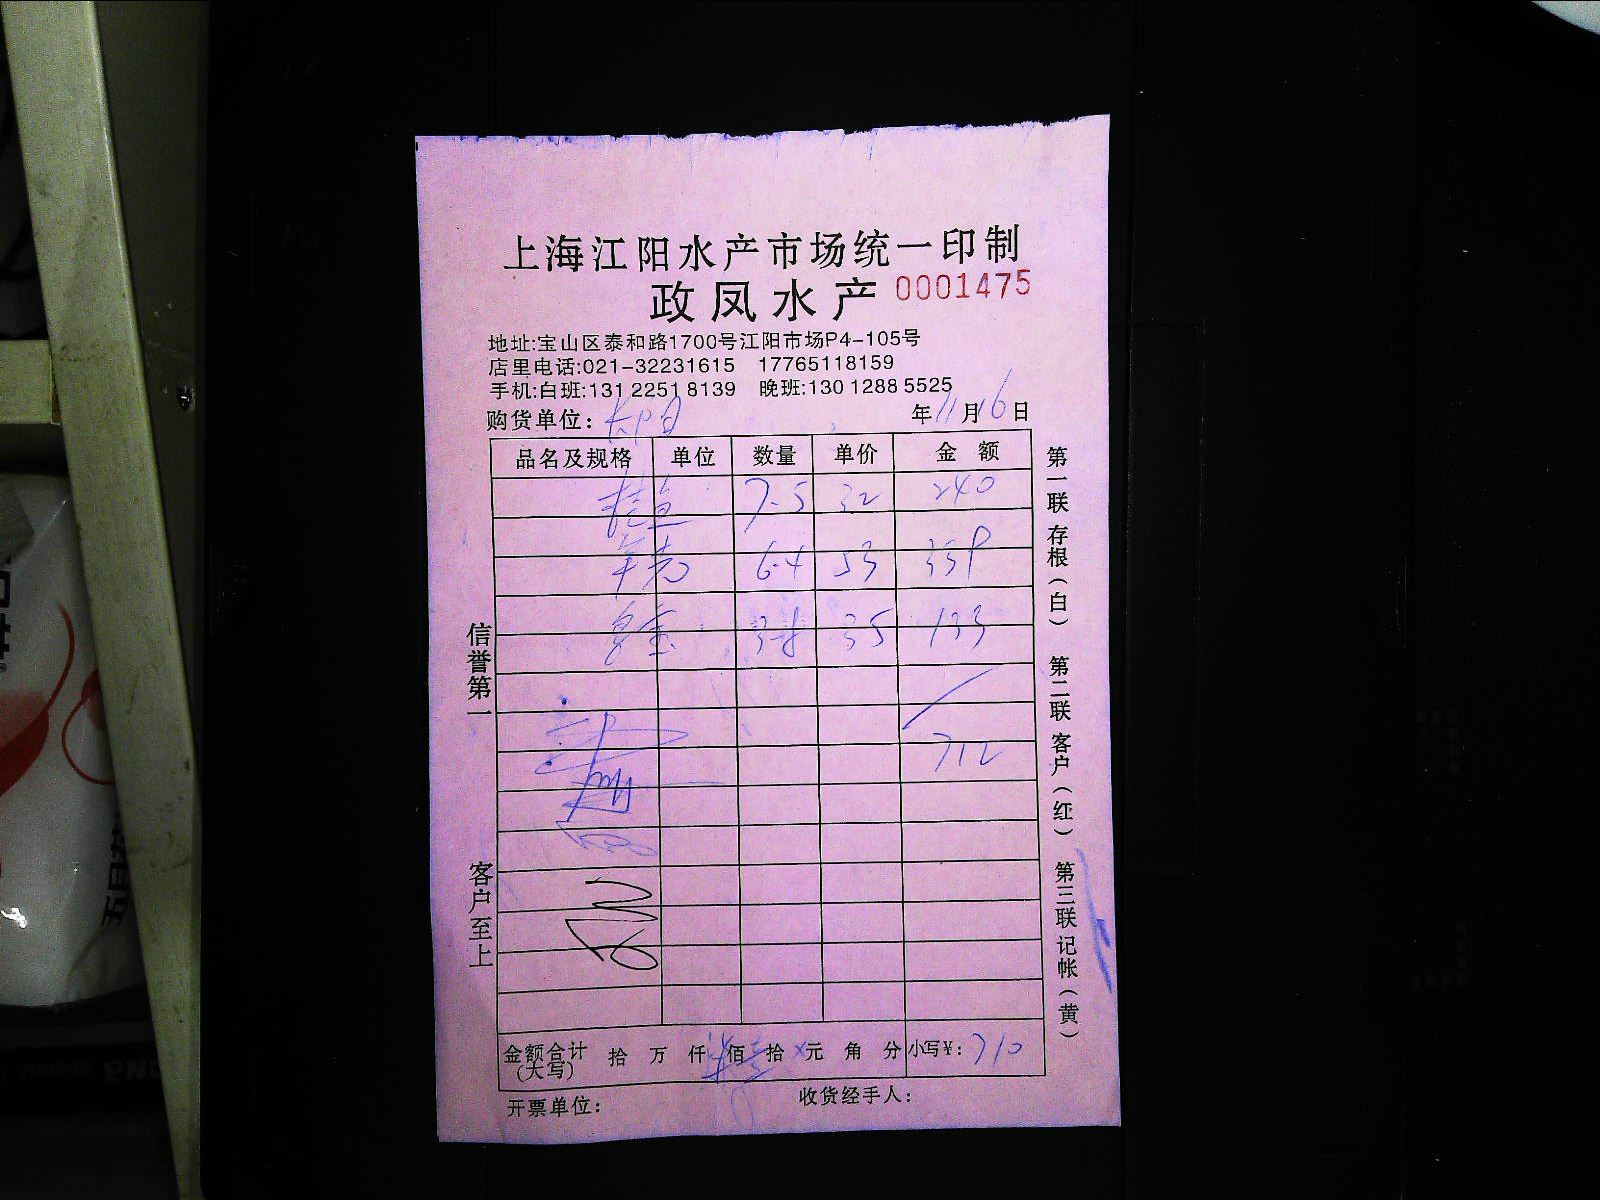 上海江阳水产市场统一印制
政凤水产 0001475
地址:宝山区泰和路1700号江阳市场P4-105号
店里电话:021-32231615 17765118159
手机:白班:131 2251 8139 晚班:130 1288 5525
购货单位: 年11月16日
品名及规格 单位 数量 单价 金额
桂鱼 7.5 32 240
6.4 53 339
3.8 35 133
712
金额合计(大写) 拾 万 仟 佰 拾 元 角 分 小写¥: 710
开票单位: 收货经手人:
信誉第一
客户至上
第一联 存根(白) 第二联 客户(红) 第三联 记帐(黄)